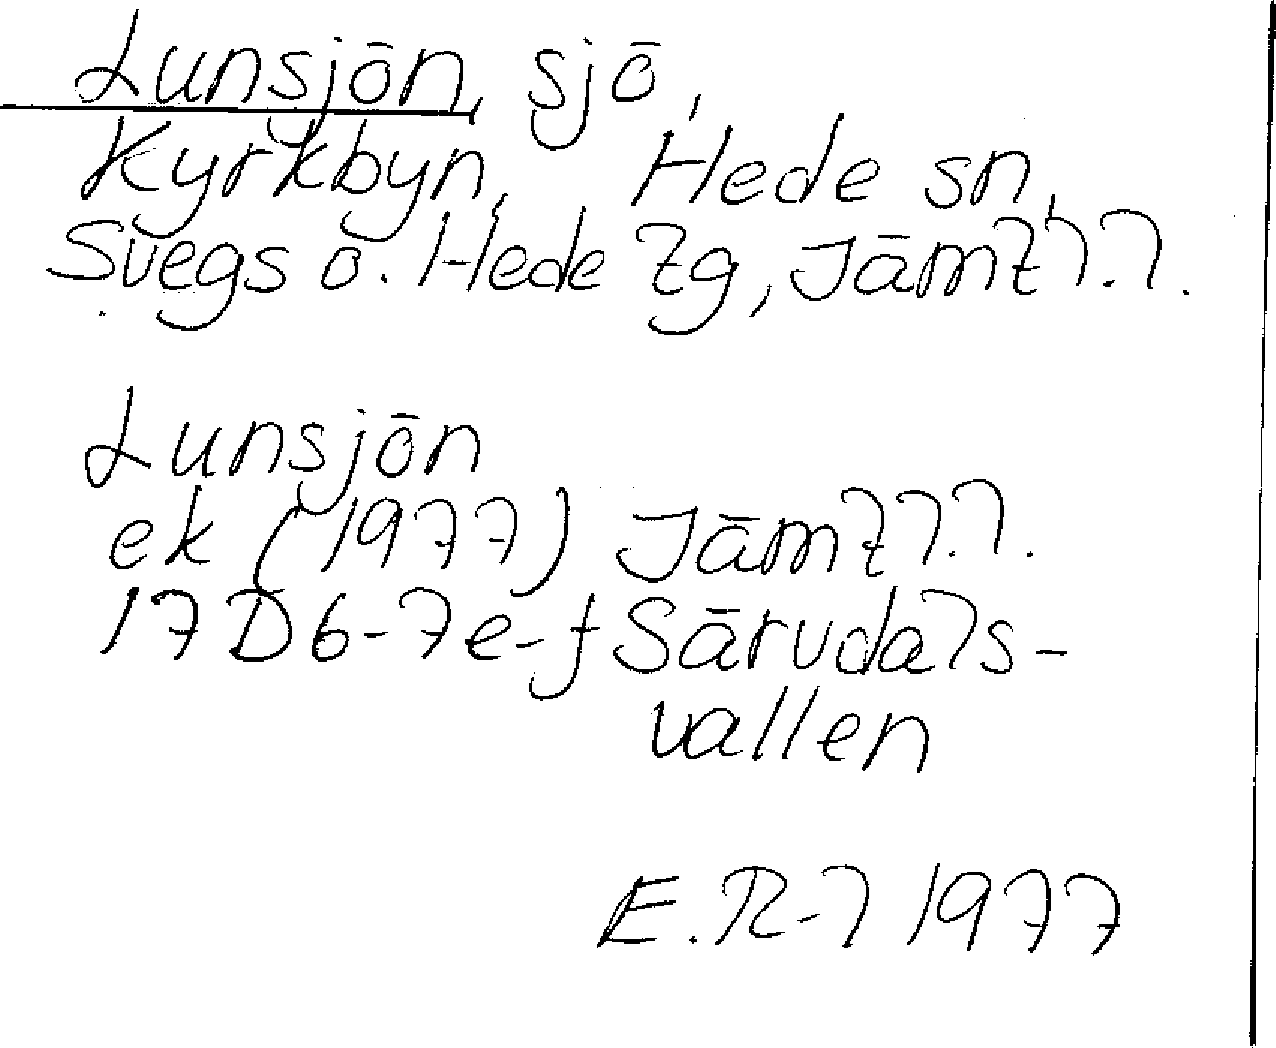 Lunsjön, sjö,
Kyrkbyn, Hede sn,
Svegs o. Hede tg, Jämtl. l.
Lunsjön
ek (1977) Jämtl. l.
17D6-7e-f Särvdals-
vallen
E.R-l 1977